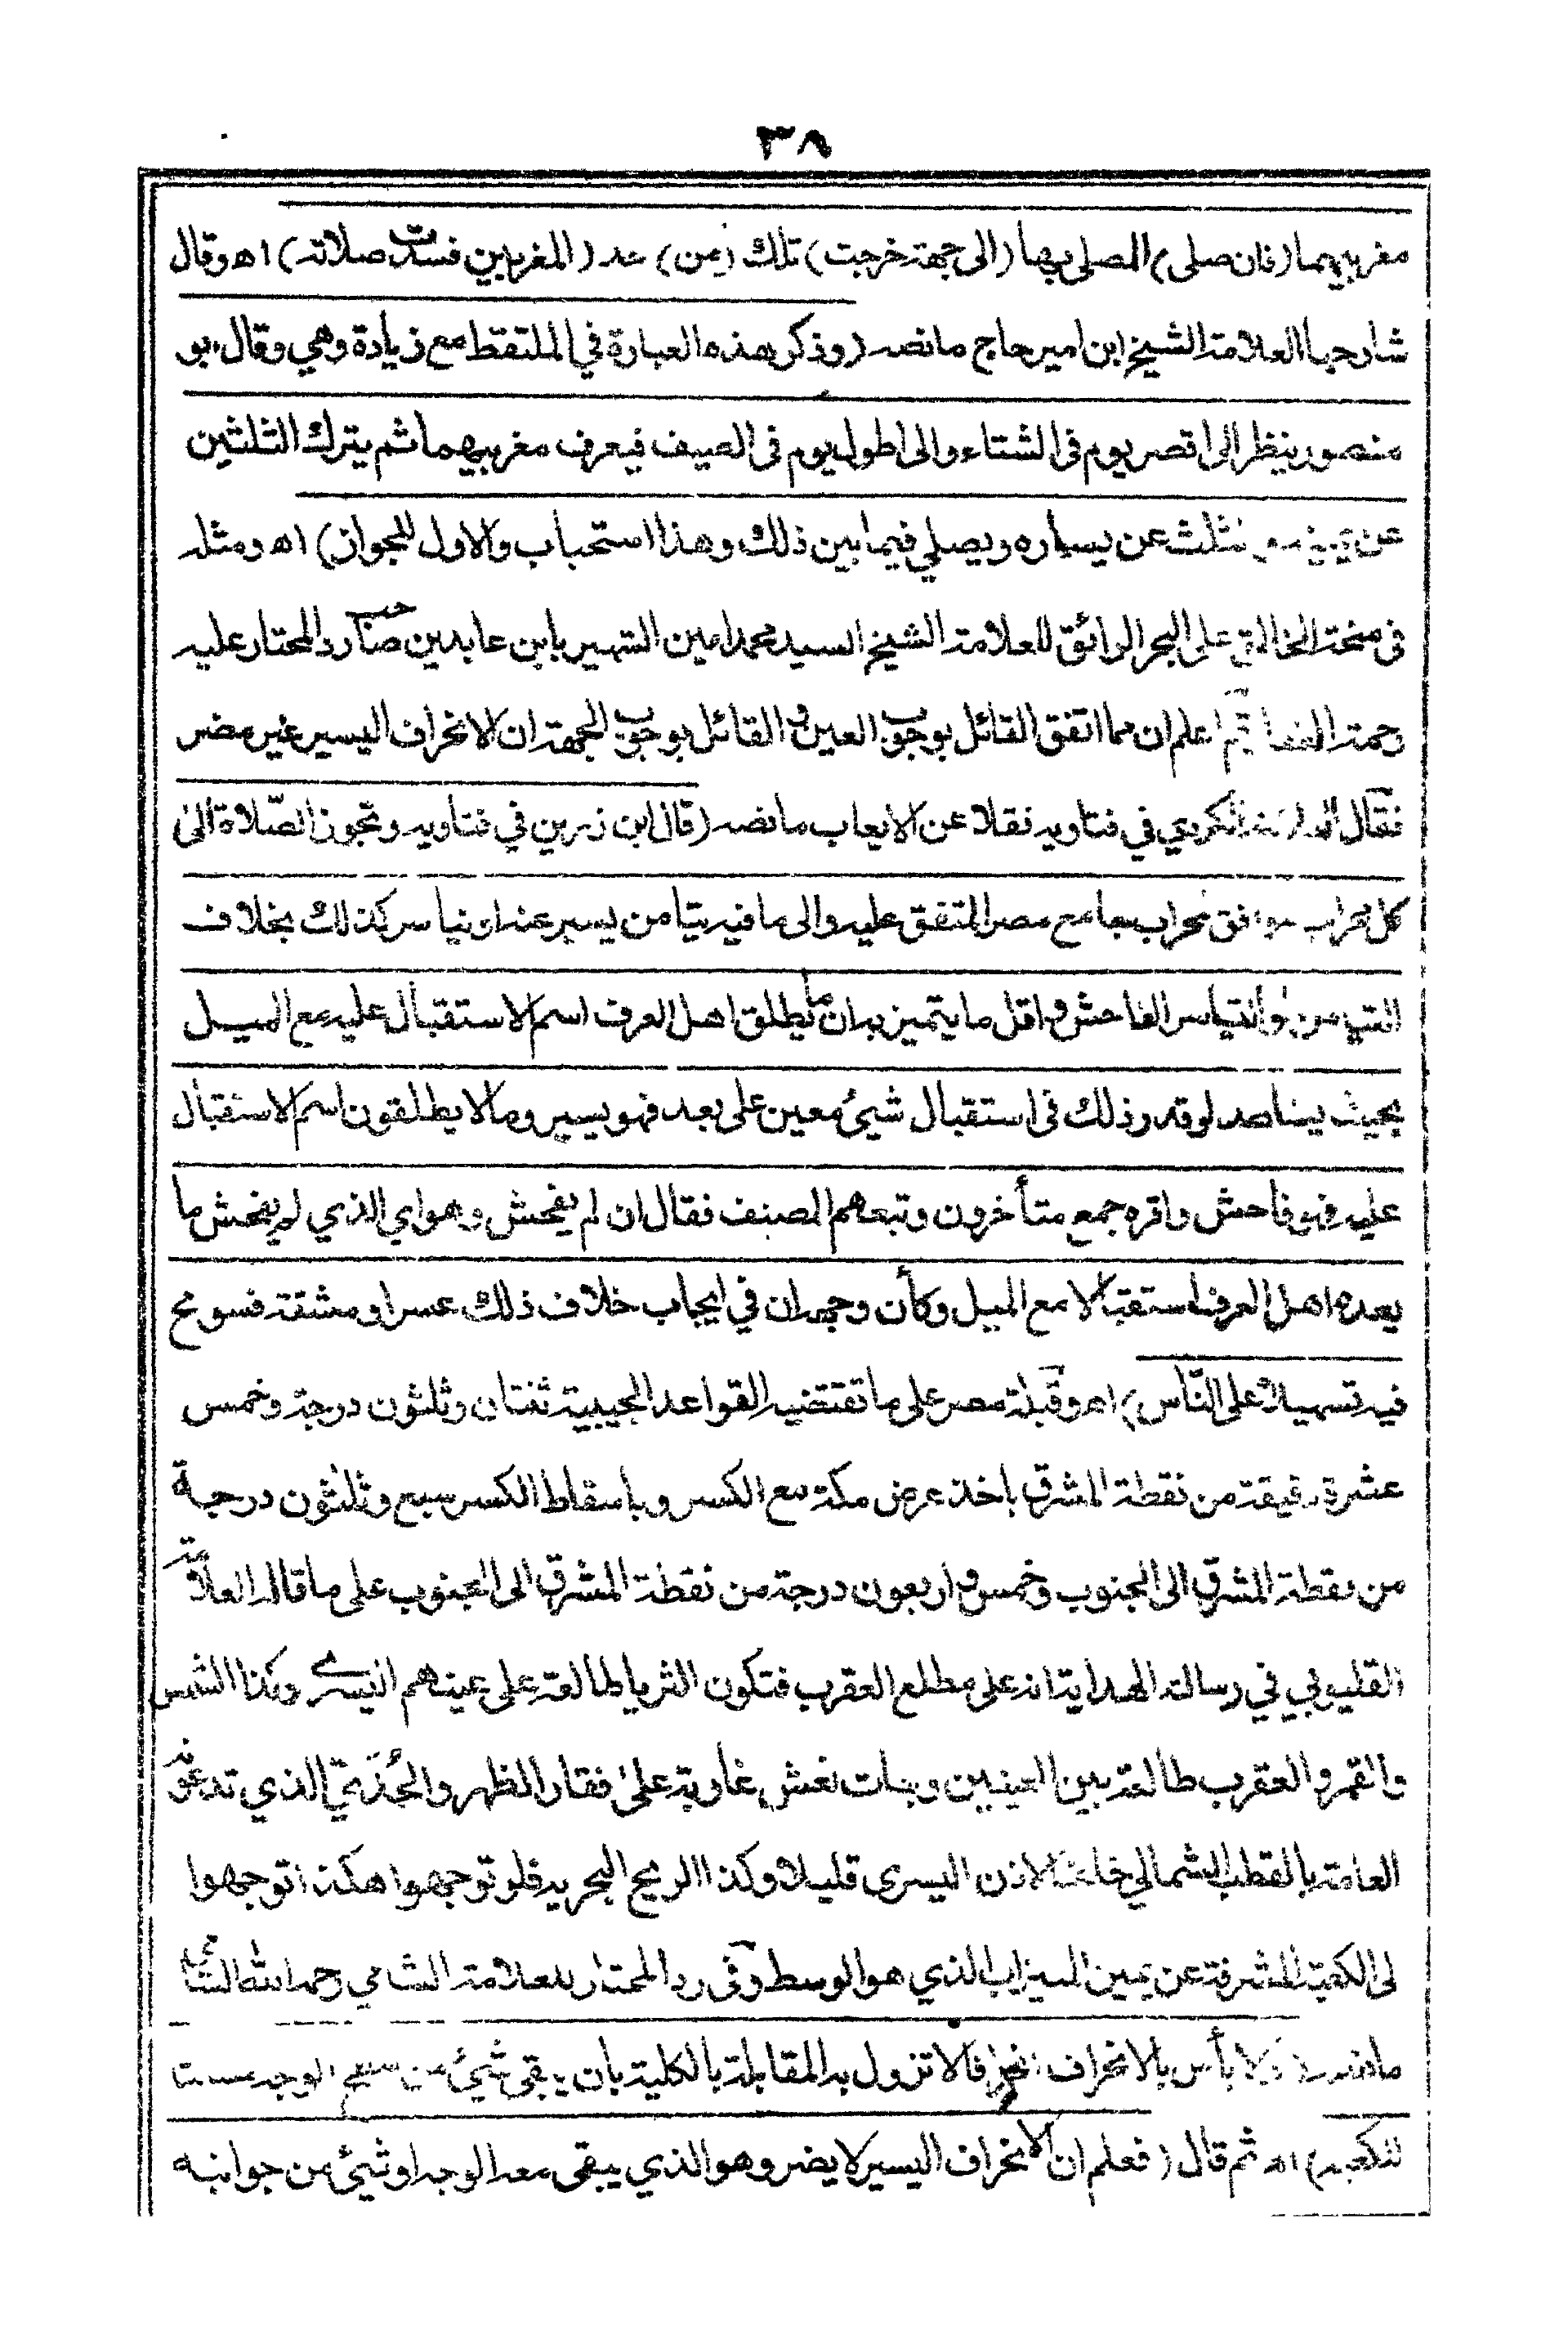 ٣٨
مغربيهما (فان صلى) المصلى بها (الى جهة خرجت) تلك (من) حد (المغربين فسدت صلاته) اه وقال
شارحها العلامة الشيخ ابن امير حاج ما نصه (وذكر هذه العبارة في الملتقط مع زيادة وهي وقال ابو
منصور ينظر الى اقصر يوم فى الشتاء والى اطول يوم فى الصيف فيعرف مغربيهما ثم يترك الثلثين
عن يمينه والثلث عن يساره ويصلي فيما بين ذلك وهذا استحباب والاول للجواز) اه ومثله
فى منحة الخالق على البحر الرائق للعلامة الشيخ السيد محمد امين الشهير بابن عابدين صاحب رد المحتار عليه
رحمة الغفار ثم اعلم ان مما اتفق القائل بوجوب العين والقائل بوجوب الجهة ان الانحراف اليسير غير مضر
فقال العلامة الكردي في فتاويه نقلا عن الايعاب ما نصه (قال ابن زرين في فتاويه وتجوز الصّلاة الى
كل محراب موافق محراب جامع مصر المتفق عليه والى ما فيه تيامن يسير عنه او تياسر كذلك بخلاف
التيامن والتياسر الفاحش واقل ما يتميز به ان ما يطلق اهل العرف اسم الاستقبال عليه مع الميل
بحيث لوقه وذلك فى استقبال شيئ معين على بعد فهو يسير وما لا يطلقون اسم الاستقبال
عليه فهو فاحش واقره جمع متأخرون وتبعهم المصنف فقال ان لم يفحش وهو اي الذي لم يفحش ما
يعده اهل العرف استقبالا مع الميل وكأن وجهه ان في ايجاب خلاف ذلك عسرا ومشقة فسومح
فيه تسهيلا على النّاس) اه وقبلة مصر على ما تقتضيه القواعد الجيبية ثنتان وثلثون درجة وخمس
عشرة دقيقة من نقطة المشرق باخذ عرض مكة مع الكسر وباسقاط الكسر سبع وثلثون درجة
من نقطة المشرق الى الجنوب وخمس واربعون درجة من نقطة المشرق الى الجنوب على ما قاله العلامة
القليوبي في رسالته الهداية انه على مطلع العقرب فتكون الثريا طالعة على عينهم اليسرى وكذا الشمس
والقمر والعقرب طالعة بين العينين وبنات نعش غاربة على فقار الظهر والجُدَيّ الذي تدعوه
العامة بالقطب الشمالي خلف الاذن اليسرى قليلا وكذا الريح البحرية فلو توجهوا هكذا توجهوا
لى الكعبة المشرفة عن يمين الميزاب الذي هو الوسط وفى رد المحتار للعلامة الشامي رحمه الله الشافى
ما نصه (ولا بأس بالانحراف انحرافا لا تزول به المقابلة بالكلية بان يبقى شيئ من سطح الوجه مسامتا
للكعبة) اه ثم قال (فعلم ان الانحراف اليسير لا يضر وهو الذي يبقى معه الوجه او شيئ من جوانبه